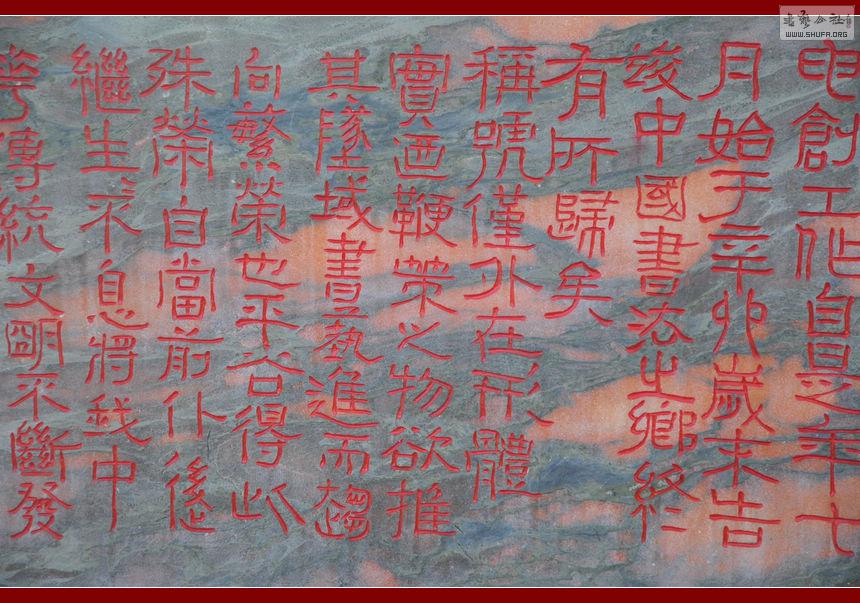 申創工作自是年七
月始于辛卯歲末告
竣中國書法之鄉終
有所歸矣
稱號僅外在形體
實迺鞭策之物欲推
其墜域書藝進而趨
向繁榮也平谷得此
殊榮自當前仆後
繼生不息將我中
華傳統文明不斷發
書藝公社
WWW.SHUFA.ORG